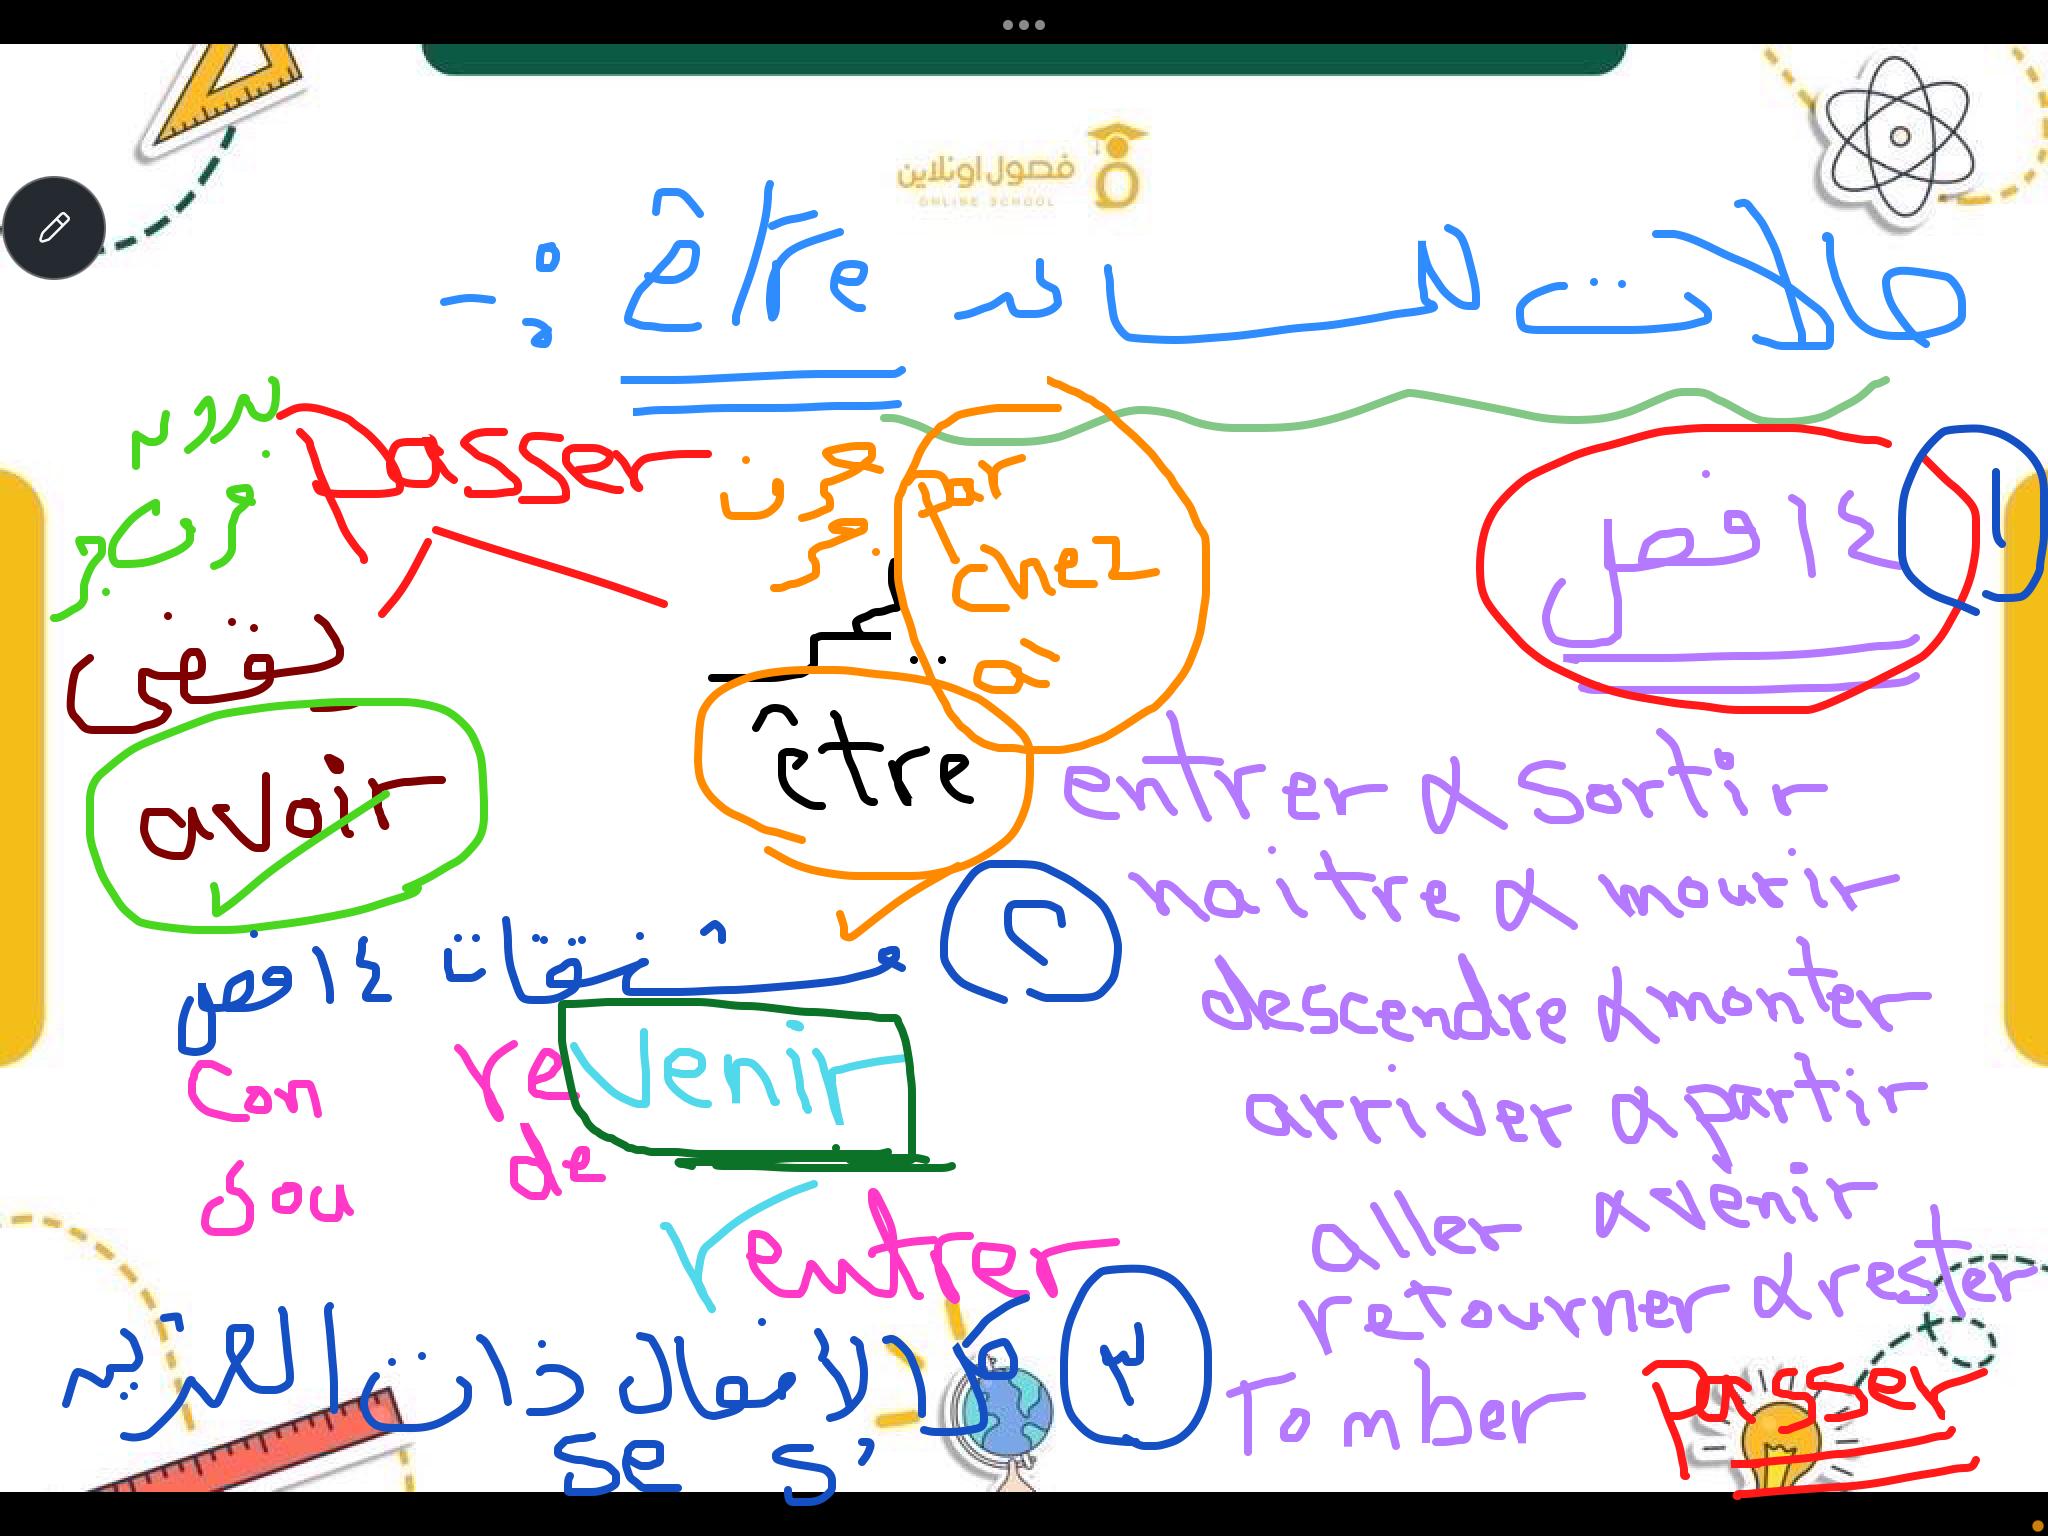 فصول اونلاين
ONLINE SCHOOL
حالات المساعد être :-
١
١٤ فعل
entrer ∝ sortir
naitre ∝ mourir
descendre ∝ monter
arriver ∝ partir
aller ∝ venir
retourner ∝ rester
Tomber
passer
passer
بدون
حرف جر
يقضي
avoir
حرف
جر
par
chez
à
يمر
être
٢
مشتقات ١٤ فعل
re venir
de
con
sou
rentrer
٣
مع الافعال ذات الضميرين
se s'